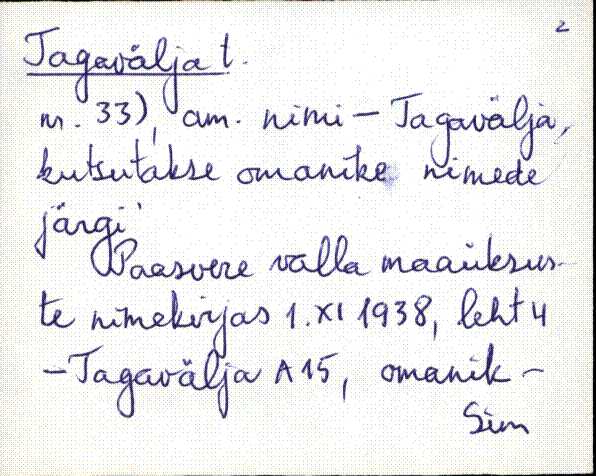 2
Tagavälja t.
nr. 33), am. nimi – Tagavälja,
kutsutakse omanike nimede
järgi'
Paasvere valla maaüksus-
te nimekirjas 1.XI 1938, leht 4
– Tagavälja A15, omanik –
Sim